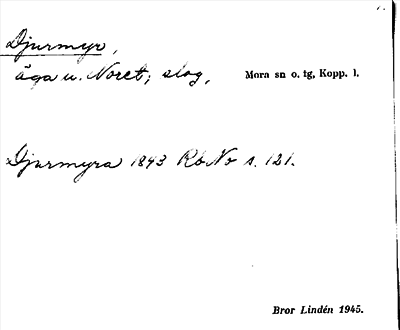 Djurmyr,
äga u. Noret; slog, Mora sn o. tg, Kopp. l.
Djurmyra 1843 Rb No s. 121.
Bror Lindén 1945.